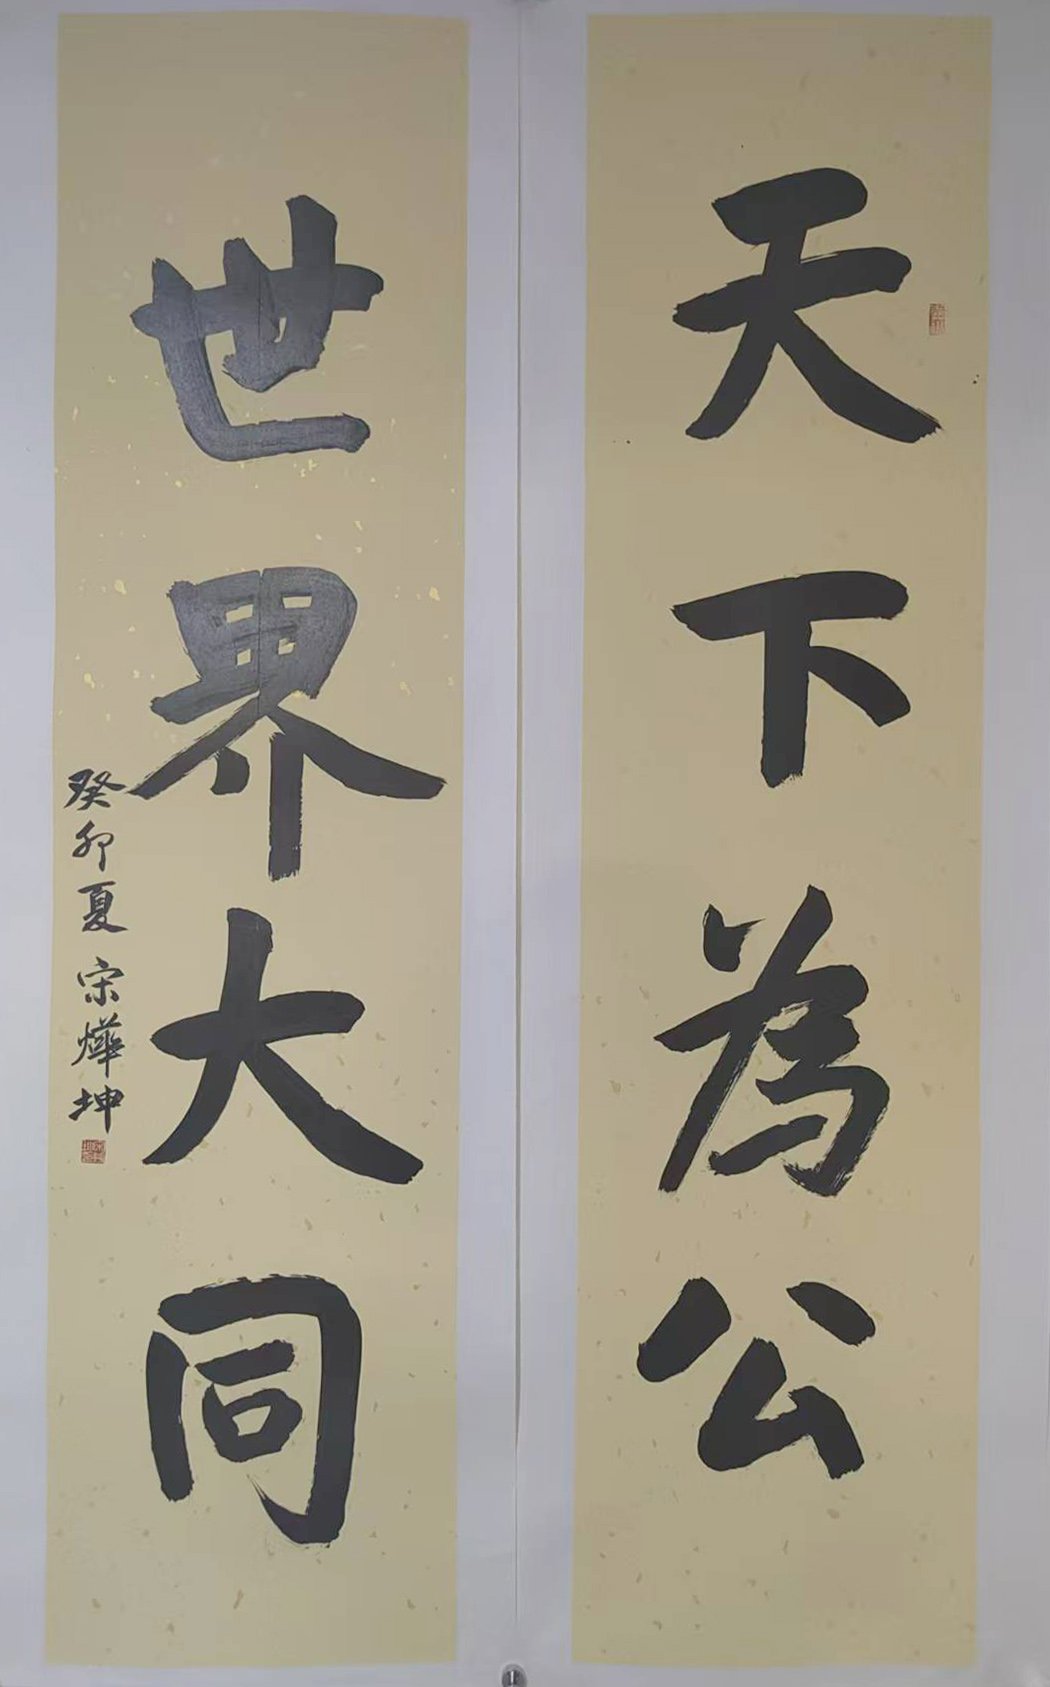 天下為公
世界大同
癸卯夏 宋燁坤